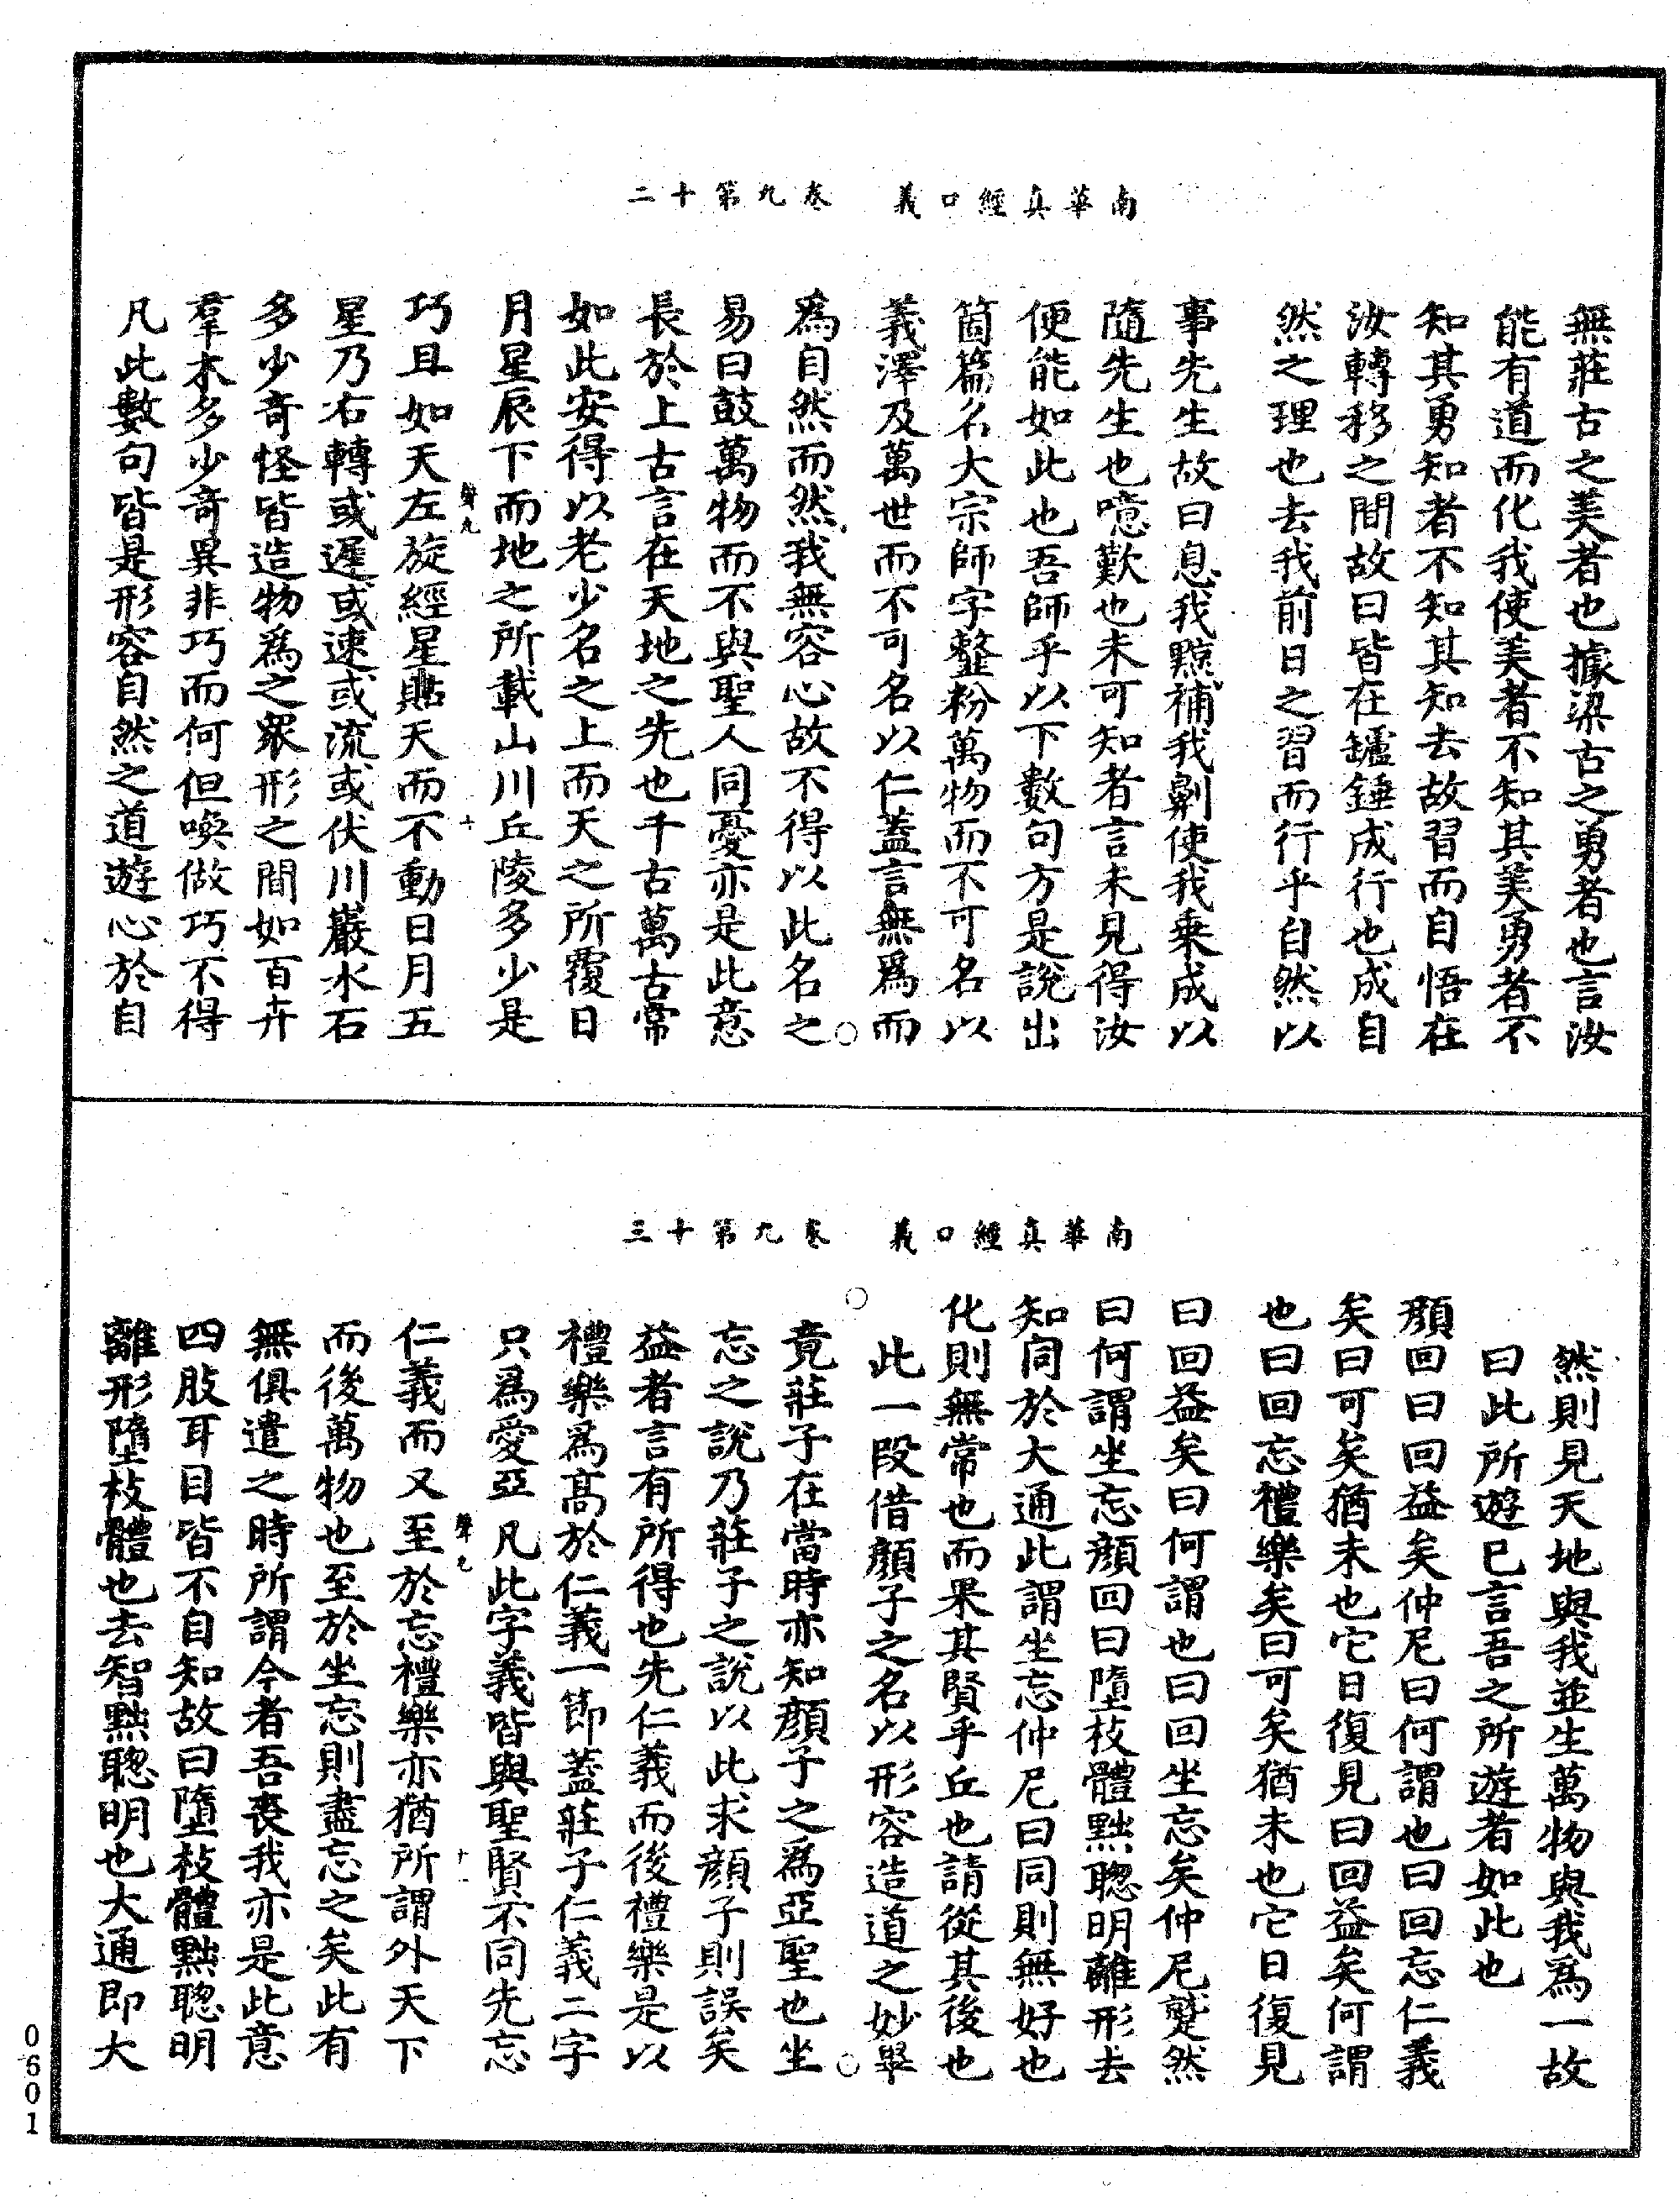 南華真經口義　卷九第十二
無莊古之美者也據梁古之勇者也言汝
能有道而化我使美者不知其美勇者不
知其勇知者不知其知去故習而自悟在
汝轉移之間故曰皆在鑪錘成行也成自
然之理也去我前日之習而行乎自然以
事先生故曰息我黥補我劓使我乗成以
隨先生也噫歎也未可知者言未見得汝
便能如此也吾師乎以下數句方是說出
箇篇名大宗師字䪠粉萬物而不可名以
義澤及萬世而不可名以仁蓋言無爲而
爲自然而然我無容心故不得以此名之
易曰鼓萬物而不與聖人同憂亦是此意
長於上古言在天地之先也千古萬古常
如此安得以老少名之上而天之所覆日
月星辰下而地之所載山川丘陵多少是
聲九　十
巧且如天左旋經星貼天而不動日月五
星乃右轉或遲或速或流或伏川巖水石
多少奇怪皆造物爲之衆形之間如百卉
羣木多少奇異非巧而何但喚做巧不得
凡此數句皆是形容自然之道遊心於自
南華真經口義　卷九第十三
然則見天地與我並生萬物與我爲一故
曰此所遊已言吾之所遊者如此也
顏回曰回益矣仲尼曰何謂也曰回忘仁義
矣曰可矣猶未也它日復見曰回益矣何謂
也曰回忘禮樂矣曰可矣猶未也它日復見
曰回益矣曰何謂也曰回坐忘矣仲尼蹵然
曰何謂坐忘顏回曰墮枝體黜聰明離形去
知同於大通此謂坐忘仲尼曰同則無好也
化則無常也而果其賢乎丘也請從其後也
此一段借顏子之名以形容造道之妙畢
竟莊子在當時亦知顏子之爲亞聖也坐
忘之說乃莊子之說以此求顏子則誤矣
益者言有所得也先仁義而後禮樂是以
禮樂爲高於仁義一節蓋莊子仁義二字
只爲愛亞凡此字義皆與聖賢不同先忘
聲九　十一
仁義而又至於忘禮樂亦猶所謂外天下
而後萬物也至於坐忘則盡忘之矣此有
無俱遣之時所謂今者吾喪我亦是此意
四肢耳目皆不自知故曰墮枝體黜聰明
離形墮枝體也去智黜聰明也大通即大
0601